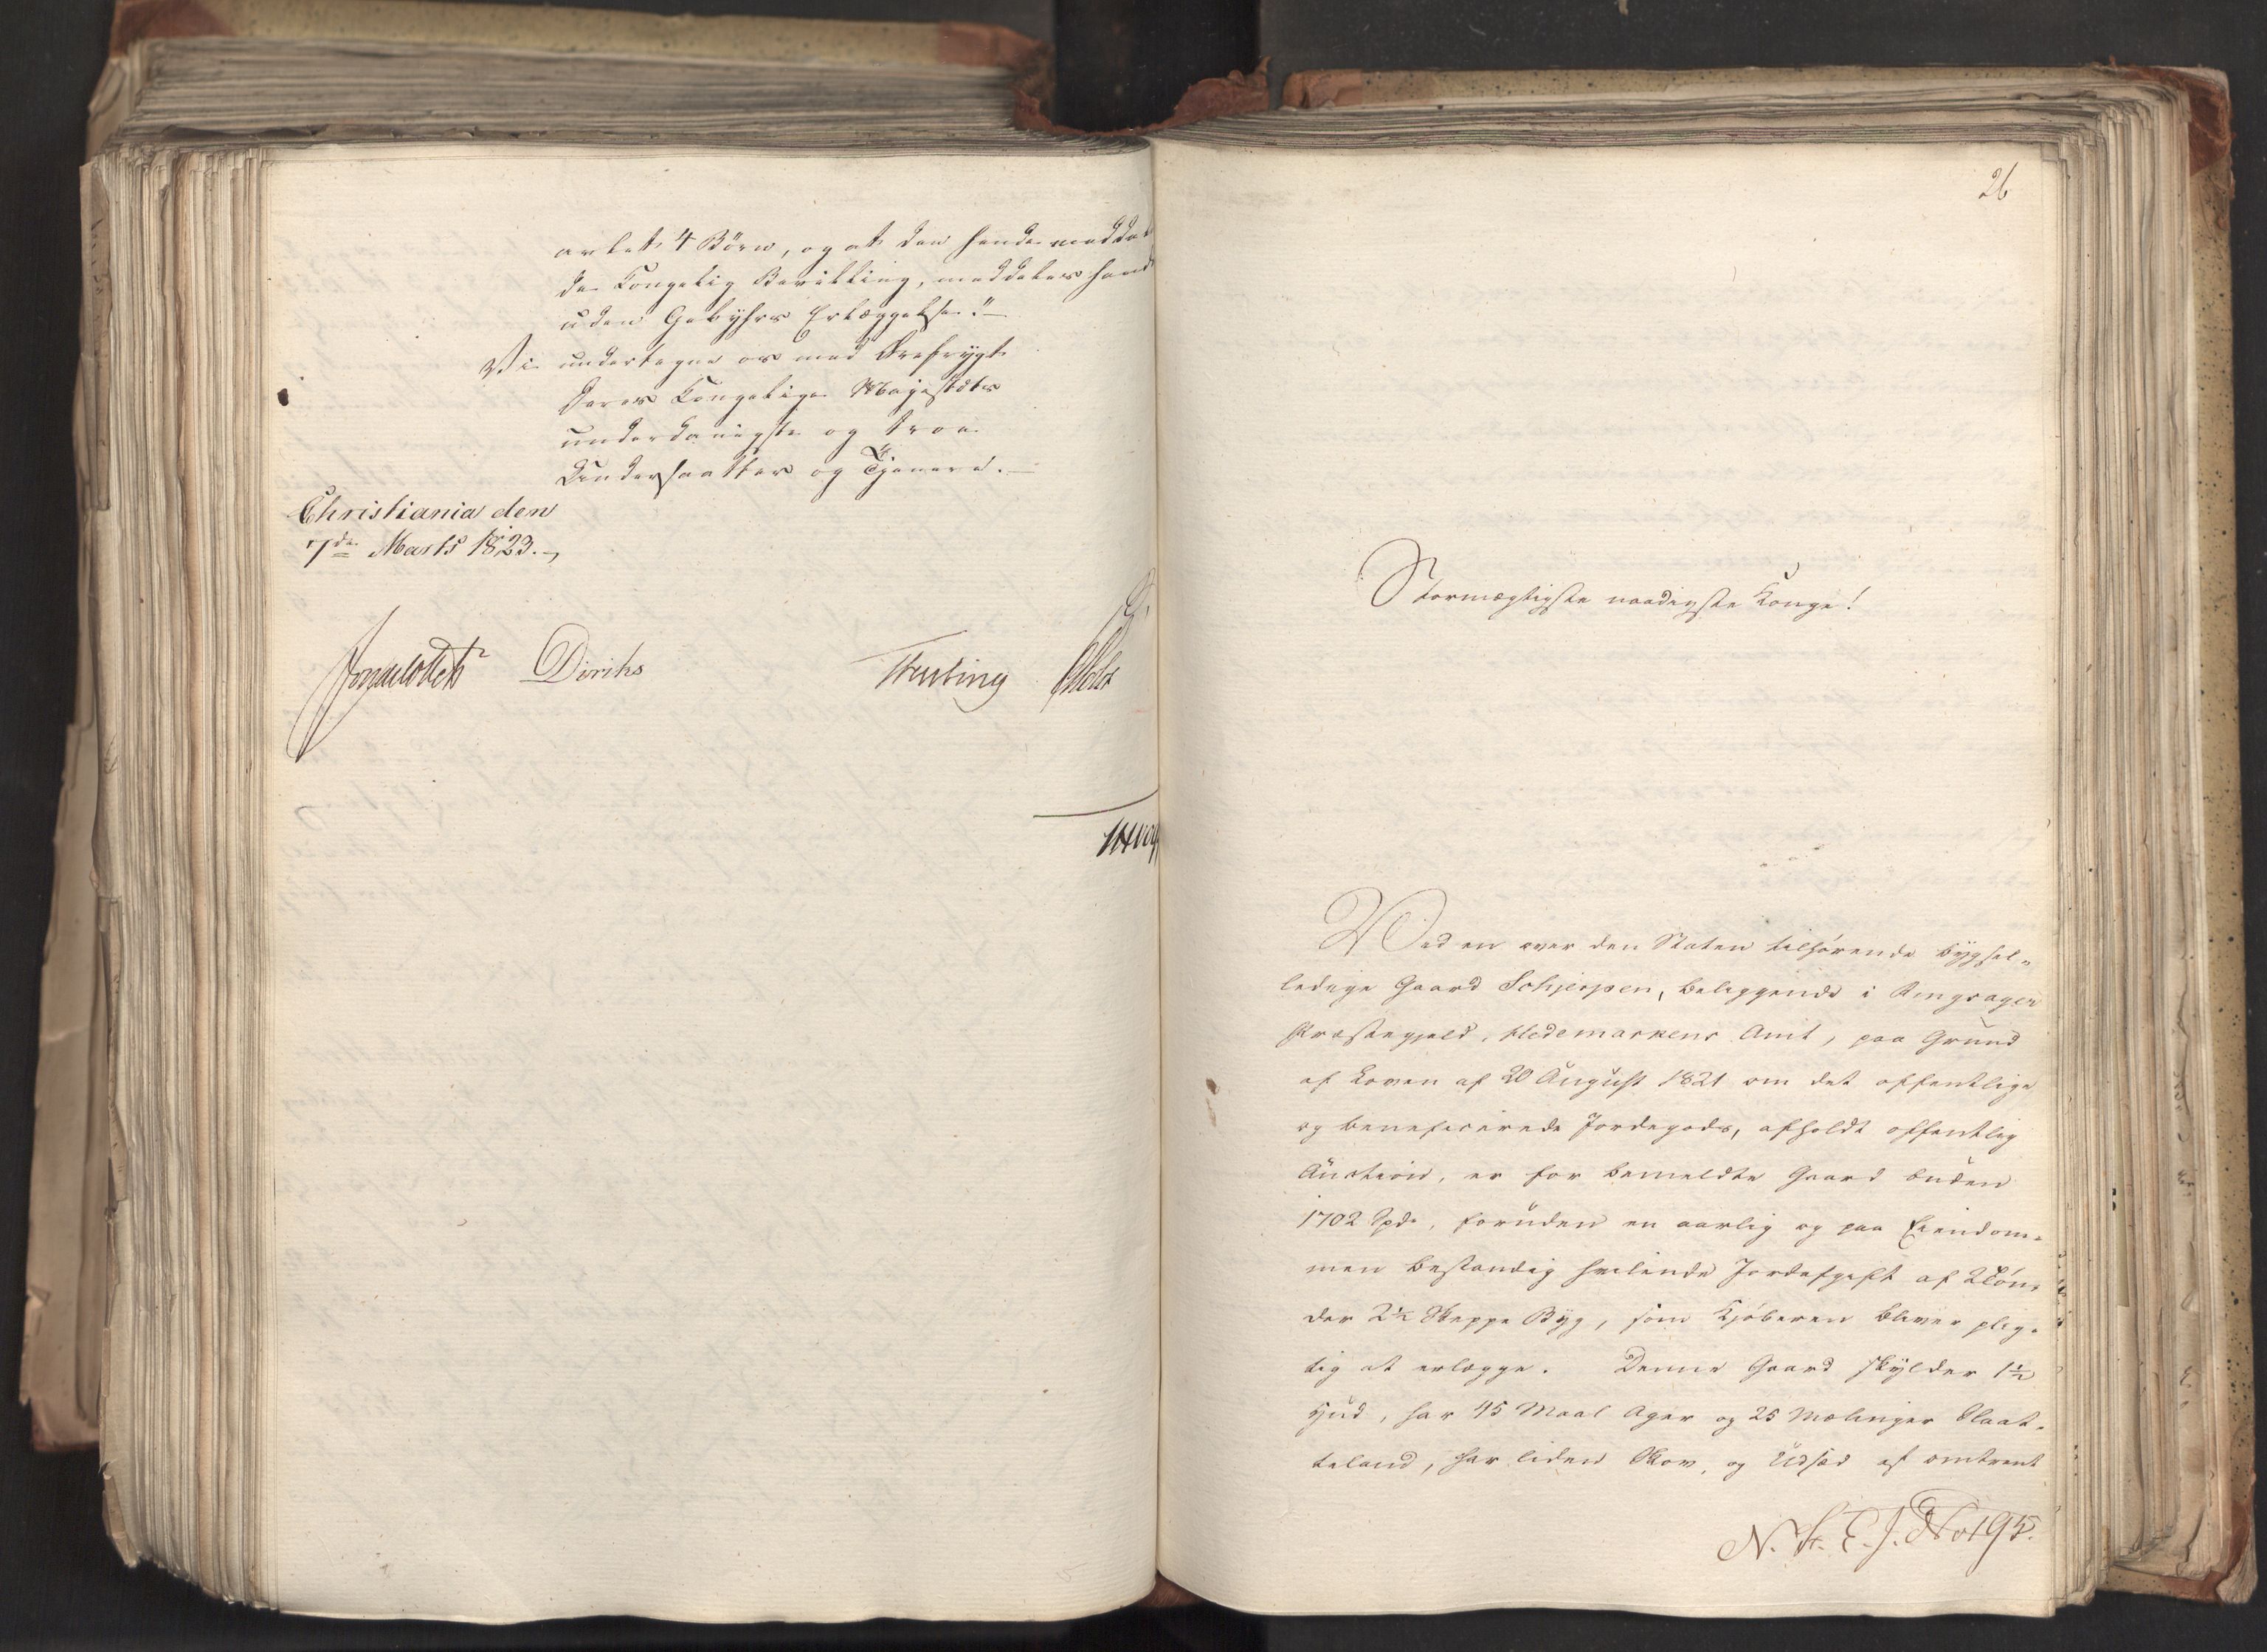 avlet 4 Børn, og at den hende meddel
de Kongelig Bevilling, meddeles hende
uden Gebyhrs Erlæggelse."—
Vi undertegne os med Ærefrygt
Deres Kongelige Majestæts
underdanigste og troe
Undersaatter og Tjenere.—
Christiania den
7de Marts 1823.
Sommerfeldt Diriks Treschow
26
Stormægtigste naadigste Konge!
Ved en over den Staten tilhørende bygsel-
ledige Gaard Schjerpen, beliggende i Ringsager
Præstegjeld, Hedemarkens Amt, paa Grund
af Loven af 20 August 1821 om det offentlige
og beneficerede Jordegods, afholdt offentlig
Auction, er for bemeldte Gaard buden
1702 Spd, foruden en aarlig og paa Eiendom-
men bestandig hvilende Jordafgift af 2 Tøn-
der 2½ Skeppe Byg, som Kjøberen bliver plig-
tig at erlægge. Denne Gaard skylder 1½
Hud, har 45 Maal Ager og 25 Mælinger Slaat-
teland, har liden Skov, og Udsæd af omtrent
N. H. E. J. No 195.